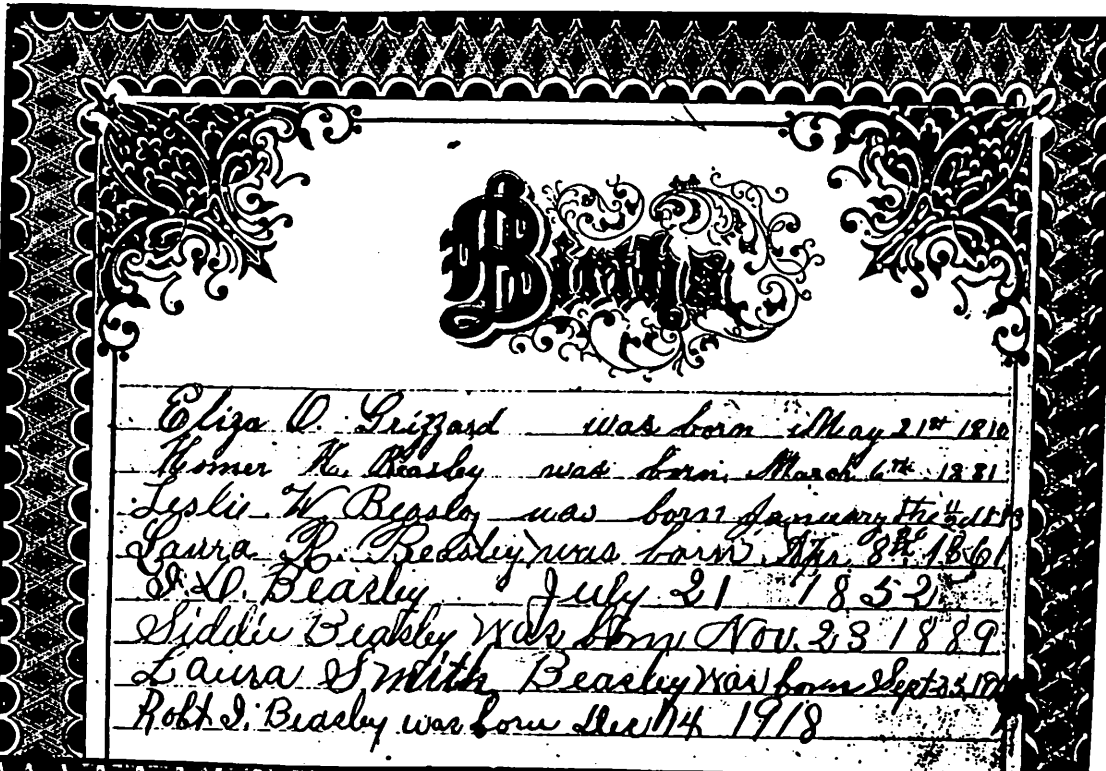 Births
Eliza O. Grizzard was born May 21st 1810
Homer H. Beasley was born March 6th 1881
Leslie W. Beasley was born January the
Laura R. Beasley was born Apr. 8th 1861
Beasley July 21 1852
Siddie Beasley was born Nov. 23 1889
Laura Smith Beasley was born Sept
Robt I. Beasley was born Dec 14 1918